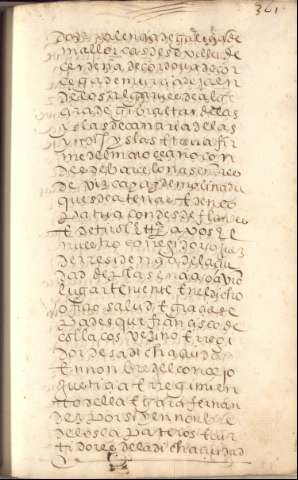 361
de valençia de galizia de
mallorcas de sevilla de
cerdeña de cordova de cor
cega de murçia de jaen
de los algarves de alge
zira de gibraltar de las
yslas de canaria de las
yndias yslas e tierra fir
me del mar oceano con
des de barcelona señores
de vizcaya e de molina du
ques de atenas e de neo
patria condes de flandes
e de tirol etc a vos el
nuestro corregidor o juez
de residençia de la çiu
dad de plasençia o a v̄ro
lugarteniente en el dicho
ofiçio salud e graçia se
pades que françisco de
collaços vezino e regi
dor desa dicha çiudad
en nonbre del conçejo
justiçia e regimien
to della e garçia fernan
dez por si y en nonbre
de los çapateros e cur
tidores de la dicha çiudad